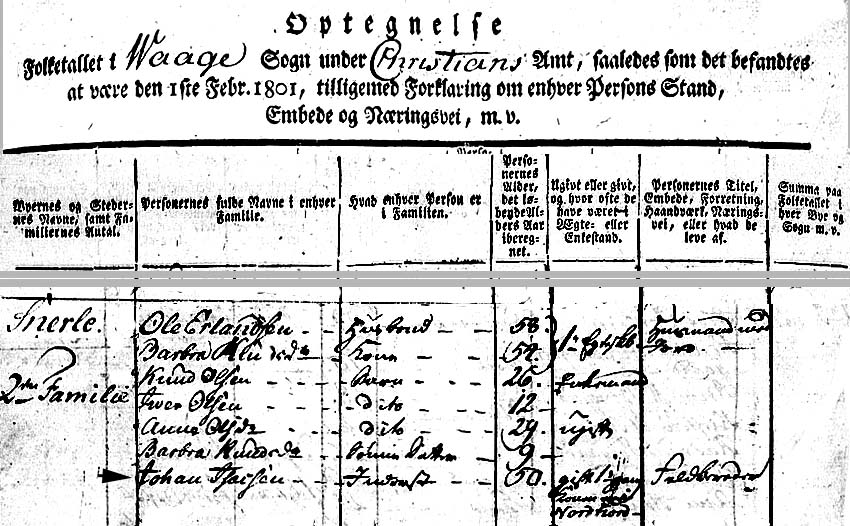 Optegnelse
Folketallet i Waage Sogn under Christians Amt, saaledes som det befandtes
at være den 1ste Febr. 1801, tilligemed Forklaring om enhver Persons Stand,
Embede og Næringsvei, m. v.
Byernes og Steder-
nes Navne, samt Fa-
miliernes Antal.
Personernes fulde Navne i enhver
Familie.
Hvad enhver Person er
i Familien.
Perso-
nernes
Alder,
det lø-
bende Al-
ders Aar
iberegnet.
Ugivt eller givt,
og hvor ofte de
have været i
Ægte- eller
Enkestand.
Personernes Titel,
Embede, Forretning,
Haandværk, Nærings-
vei, eller hvad de
leve af.
Summa paa
Folketallet i
hver Bye og
Sogn m. v.
Snerle. Ole Erlandsen Husbond 58. 1te Huusmand med
Barbra Konn 52. Jord
2den Familie Knud Olsen Barn 26. Enkemand
Iver Olsen dito 12
Anne dito 29. ugift
Barbra Knudsdr 9
Johan Inderst 50. gift